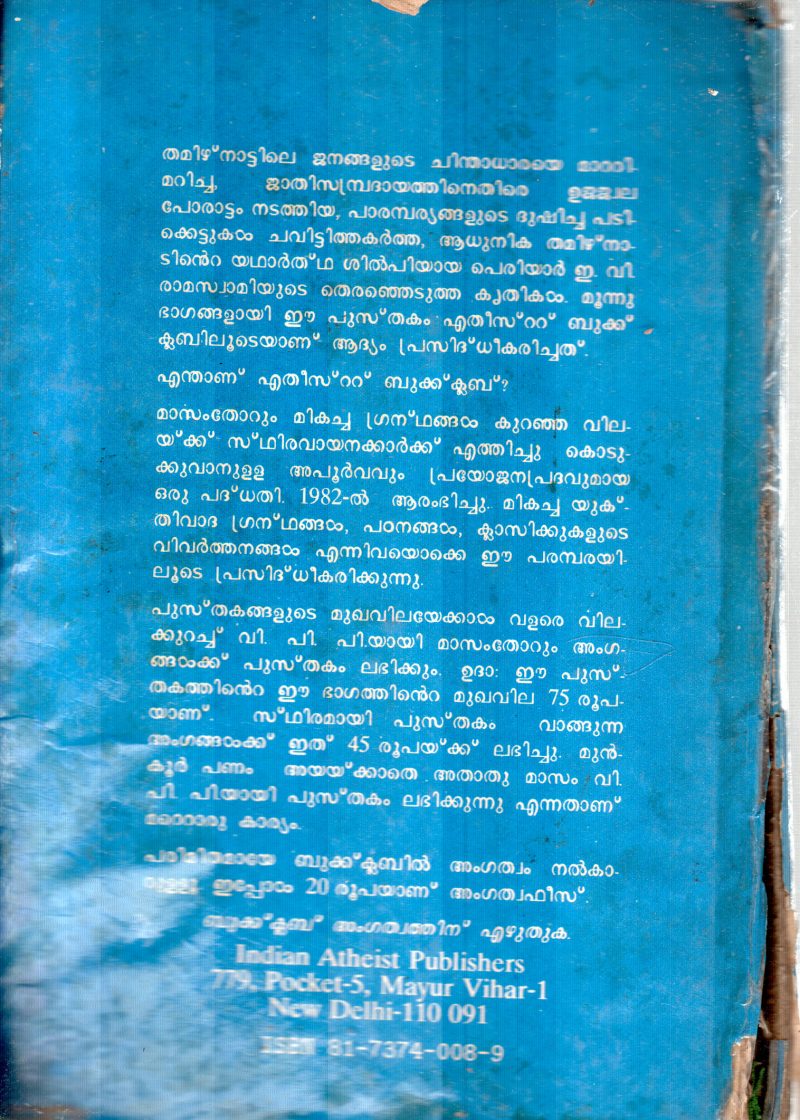 തമിഴ്‌നാട്ടിലെ ജനങ്ങളുടെ ചിന്താധാരയെ മാററി-
മറിച്ച, ജാതിസമ്പ്രദായത്തിനെതിരെ ഉജജ്വല
പോരാട്ടം നടത്തിയ, പാരമ്പര്യങ്ങളുടെ ദുഷിച്ച പടി-
ക്കെട്ടുകൾ ചവിട്ടിത്തകർത്ത, ആധുനിക തമിഴ്‌നാ-
ടിൻെറ യഥാർത്ഥ ശിൽപിയായ പെരിയാർ ഇ. വി.
രാമസ്വാമിയുടെ തെരഞ്ഞെടുത്ത കൃതികൾ. മൂന്നു
ഭാഗങ്ങളായി ഈ പുസ്തകം എതീസ്ററ് ബുക്ക്
ക്ലബിലൂടെയാണ് ആദ്യം പ്രസിദ്ധീകരിച്ചത്.
എന്താണ് എതീസ്ററ് ബുക്ക്ക്ലബ്?
മാസംതോറും മികച്ച ഗ്രന്ഥങ്ങൾ കുറഞ്ഞ വില-
യ്ക്ക് സ്ഥിരവായനക്കാർക്ക് എത്തിച്ചു കൊടു-
ക്കുവാനുളള അപൂർവവും പ്രയോജനപ്രദവുമായ
ഒരു പദ്ധതി. 1982-ൽ ആരംഭിച്ചു. മികച്ച യുക്-
തിവാദ ഗ്രന്ഥങ്ങൾ, പഠനങ്ങൾ, ക്ലാസിക്കുകളുടെ
വിവർത്തനങ്ങൾ എന്നിവയൊക്കെ ഈ പരമ്പരയി-
ലൂടെ പ്രസിദ്ധീകരിക്കുന്നു.
പുസ്തകങ്ങളുടെ മുഖവിലയേക്കാൾ വളരെ വില-
ക്കുറച്ച് വി. പി. പി.യായി മാസംതോറും അംഗ-
ങ്ങൾക്ക് പുസ്തകം ലഭിക്കും. ഉദാ: ഈ പുസ്-
തകത്തിൻെറ ഈ ഭാഗത്തിൻെറ മുഖവില 75 രൂപ-
യാണ്. സ്ഥിരമായി പുസ്തകം വാങ്ങുന്ന
അംഗങ്ങൾക്ക് ഇത് 45 രൂപയ്ക്ക് ലഭിച്ചു. മുൻ-
കൂർ പണം അയയ്ക്കാതെ അതാതു മാസം വി.
പി. പി.യായി പുസ്തകം ലഭിക്കുന്നു എന്നതാണ്
മറെറാരു കാര്യം.
പരിമിതമായേ ബുക്ക്ക്ലബിൽ അംഗത്വം നൽകാ-
റുളളൂ. ഇപ്പോൾ 20 രൂപയാണ് അംഗത്വഫീസ്.
ബുക്ക്ക്ലബ് അംഗത്വത്തിന് എഴുതുക.
Indian Atheist Publishers
779, Pocket-5, Mayur Vihar-1
New Delhi-110 091
ISBN 81-7374-008-9